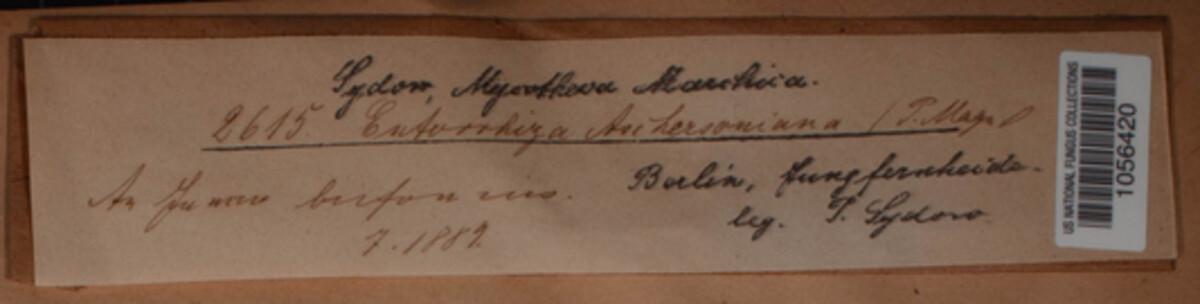 Sydow, Mycotheca Marchica.
2615. Entorrhiza Aschersoniana (P. Magn.)
An Juncus bufonius.
7. 1889.
Berlin, Jungfernheide.
leg. P. Sydow.
US NATIONAL FUNGUS COLLECTIONS
1056420